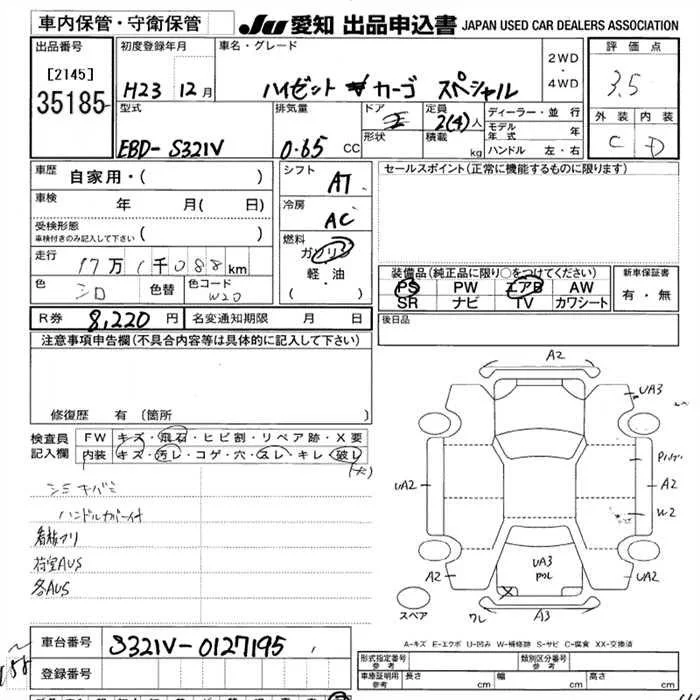 車内保管・守衛保管
JU 愛知 出品申込書 JAPAN USED CAR DEALERS ASSOCIATION
出品番号
[2145]
35185
初度登録年月
H23 12月
車名・グレード
ハイゼット カーゴ スペシャル
2WD
・
4WD
評価点
3.5
外装 内装
C D
型式
EBD-S321V
排気量
0.65 CC
ドア
形状
定員
2(4)人
積載
kg
ディーラー・並行
モデル年式 年
ハンドル 左・右
車歴
自家用・( )
車検
年 月( 日)
受検形態
車検付きのみ記入して下さい ( )
走行
17万1千088km
色
シロ
色替
色コード
W20
シフト
AT
冷房
AC
燃料
ガソリン
軽・油
( ・ )
セールスポイント(正常に機能するものに限ります)
装備品(純正品に限り○をつけてください)
PS PW エアB AW
SR ナビ TV カワシート
新車保証書
有・無
R券 8,220円 名変通知期限 月 日
後日品
注意事項申告欄(不具合内容等は具体的に記入して下さい)
修復歴 有(箇所 )
検査員
記入欄
FW キズ・飛石・ヒビ割・リペア跡・X要
内装 キズ・汚レ・コゲ・穴・スレ・キレ・破レ
(大)
シミ キバミ
ハンドルカバー付
看板フリ
荷室AUS
各AUS
A2
UA3
UA2
A2
W2
UA3
A2
UA2
ワレ
A3
スペア
A-キズ E-エクボ U-凹み W-補修跡 S-サビ C-腐食 XX-交換済
車台番号
S321V-0127195
登録番号
形式指定番号
参考
類別区分番号
参考
車庫証明用
参考
長さ cm 幅 cm 高さ cm